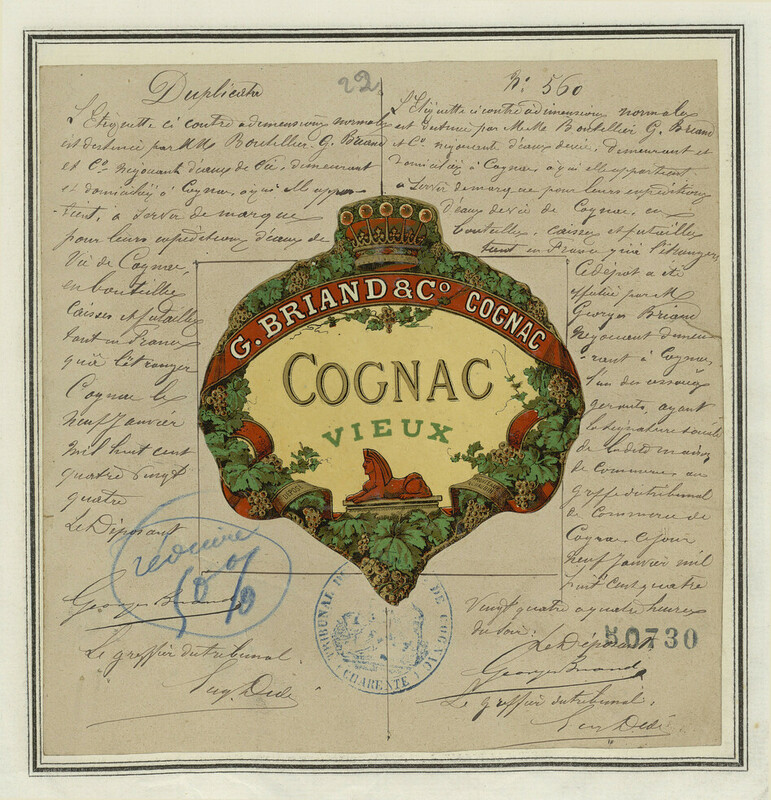 Duplicata
22
N° 560
L'Etiquette ci contre a dimensions normales
est destinée par MMs Boutellier G. Briand
et Co Négociants d'eaux de Vie, demeurant
et domiciliés à Cognac, à qui elle appar-
tient, a servir de marque
pour leurs expéditions d'eaux de
Vie de Cognac,
en bouteilles
caisses et futailles
tant en France
qu'à l'étranger
Cognac le
neuf Janvier
mil huit cent
quatre vingt
quatre
Le Déposant
Georges Briand
Le greffier du tribunal
reduire
50 %
L'Etiquette ci contre a dimensions normales
est destinée par M.Ms Boutellier G. Briand
et Co négociants d'eaux de vie, demeurant et
domiciliés à Cognac, à qui elle appartient
a servir de marque pour leurs expéditions
d'eaux de vie de Cognac, en
bouteilles, caisses et futailles
tant en France qu'à l'étranger
Ce dépot a été
effectué par M
Georges Briand
Négociant demeu-
rant à Cognac,
l'un des associés
gerants, ayant
la signature sociale
de la dite maison
de Commerce au
greffe du tribunal
de Commerce de
Cognac ce jour
neuf Janvier mil
huit cent quatre
Vingt quatre a quatre heures
du soir.
Le Déposant
50730
Georges Briand
Le greffier du tribunal.
G. BRIAND & Co COGNAC
COGNAC
VIEUX
TRIBUNAL DE COGNAC
(CHARENTE)